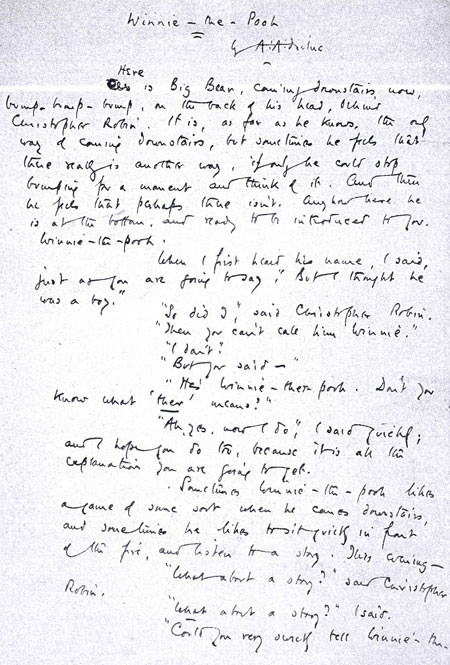 Winnie-the-Pooh
by A.A. Milne
Here
is Big Bear, coming downstairs now,
bump-bump-bump, on the back of his head, behind
Christopher Robin. It is, as far as he knows, the only
way of coming downstairs, but sometimes he feels that
there really is another way, if only he could stop
bumping for a moment and think of it. And then
he feels that perhaps there isn't. Anyhow here he
is at the bottom, and ready to be introduced to you.
Winnie-the-pooh.
When I first heard his name, I said,
just as you are going to say, "But I thought he
was a boy."
"So did I," said Christopher Robin.
"Then you can't call him Winnie."
"I don't."
"But you said—"
"He's Winnie-ther-pooh. Don't you
know what 'ther' means?"
"Ah, yes, now I do," I said quickly;
and I hope you do too, because it is all the
explanation you are going to get.
Sometimes Winnie-the-pooh likes
a game of some sort when he comes downstairs,
and sometimes he likes to sit quietly in front
of the fire, and listen to a story. This evening—
"What about a story?" said Christopher
Robin.
"What about a story?" I said.
"Could you very sweetly tell Winnie-the-